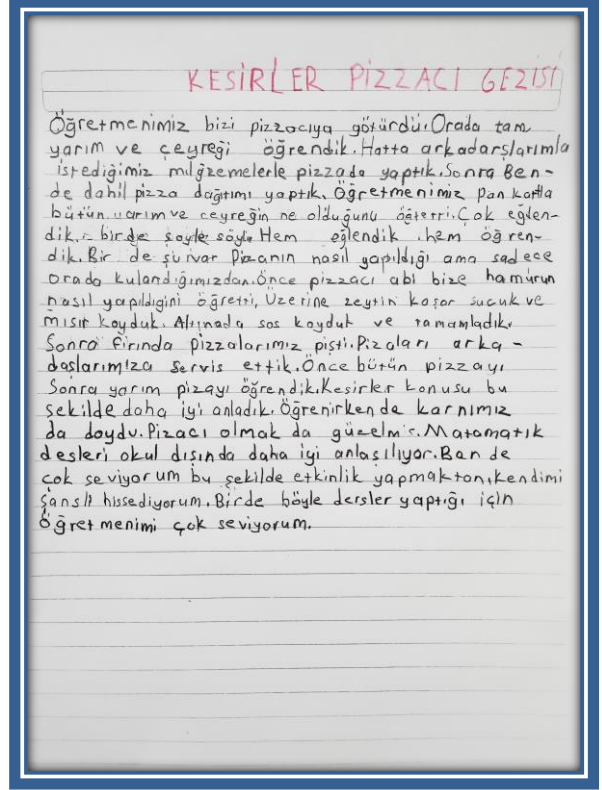 KESİRLER PİZZACI GEZİSİ
Öğretmenimiz bizi pizzacıya götürdü. Orada tam
yarım ve çeyreği öğrendik. Hatta arkadarşlarımla
istediğimiz milgzemelerle pizzada yaptık. Sonra Ben-
de dahil pizza dağıtımı yaptık. Öğretmenimiz pankartla
bütün yarım ve ceyreğin ne olduğunu öğretti. Çok eğlen-
dik. birde şöyle söyle Hem eğlendik .hem öğren-
dik. Bir de şu var Pizanın nasıl yapıldığı ama sadece
orada kulandığımızdan. Önce pizzacı abi bize hamurun
nasıl yapıldıgini öğretti, Üzerine zeytin kaşar sucuk ve
mısır koyduk. Altınada sos koyduk ve tamamladık.
Sonra fırında pizzalarımız pişti. Pizaları arka-
daşlarımıza servis ettik. Önce bütün pizzayı
Sonra yarım pizayı öğrendik. Kesirler konusu bu
şekilde daha iyi anladık. Öğrenirken de karnımız
da doydu. Pizacı olmak da güzelmiş. Matamatik
desleri okul dışında daha iyi anlaşılıyor. Ban de
çok seviyorum bu şekilde etkinlik yapmaktan, kendimi
Şanslı hissediyorum. Birde böyle dersler yaptığı için
Öğretmenimi çok seviyorum.